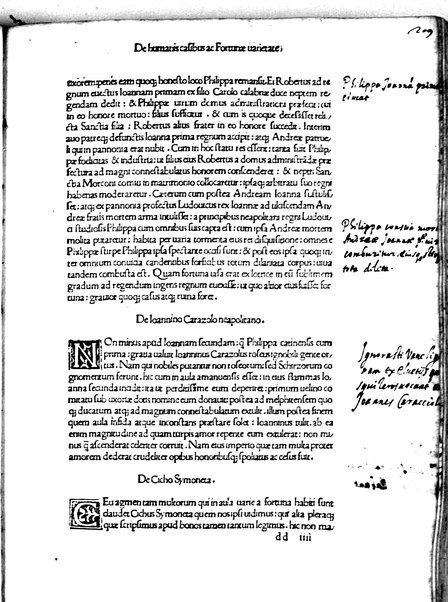 209
De humanis casibus ac Fortunæ uarietate;
exorem penes eam quoq; honesto loco Philippa remansit. Ei Robertus ad re
gnum euectus Ioannam primam ex filio Carolo calabriæ duce neptem re
gendam dedit: & Philippæ uirum domus administrandæ præfecit: cui
in eo honore mortuo: filius sufficitur. & cum is quoque decessisset reli
cta Sanctia filia: Robertus alius frater in eo honore succedit. Interim
auo patreq; defunctis Ioanna primo regnum accipit: atq; Andreæ patrue
li qui in pannonia erat nubit. Cum in hoc statu res essent: tanta fuit Philip
pæ sedulitas & industria: ut filius eius Robertus a domus administrādæ præ
fectura ad magni connestabularis honorem conscenderet: & neptis San
ctia Morconi comiti in matrimonio collocaretur: ipsaq; arbitratu suo regni
habenas moderaretur. Cæterum cum postea Andream Ioanna sustulis
set: atq; ex pannonia profectus Ludouicus rex Ioannæ ad ulciscendam An
dreæ fratis mortem arma intulisset: a principibus neapolitani regni Ludoui
ci studiosis Philippa cum omnibus suis capta est: cum ipsa Andreæ mortem
molita putaretur: habita per uaria tormenta eius rei disquisitione: omnes e
Philippæ stirpe Philippa ipsa spectante occisi sunt: & post eos ipsa quoq; in
ter omnium conuicia candentibus forficibus totum dilaniata corpus: uiua
tandem combusta est. Quam fortuna
gradum ad regendum ingens regnum euexisse: ut quo altior eius fuisset for
tuna: grauior quoq; casus atq; ruina foret.
De Ioannino Carazolo neapolitano.
NOn minus apud Ioannam secundam: q̃ Philippa catinensis cum
prima: gratia ualuit Ioanninus Carazolus rosei ignobili gente or
tus. Nam qui nobiles putantur non roseorum: sed Schizorum co
gnomentum ferunt. hic cum in aula enmanuensis esset: in eius flammas Io
anna secunda incidit: ita ut perditissime eum deperiret: primum uelino co
mitatu sub uxoriæ dotis nomine eum donauit: postea ad melphitensem quo
q; ducatum atq; ad magnum connestabulatum extulit. illum postea finem
quem aula infida atque inconstans præstare solet: Ioanninus tulit. ab ea
enim magnitudine ad quam turpis amor repente eum extulerat: non mi
nus q̃ ascenderat celeriter corruit. Nam eius imperio quæ tam multa propter
amorem dederat crudeliter opibus honoribusq; spoliatus ac cæsus fuit.
De Cicho Symoneta.
SEu agmen tam multorum qui in aula uarie a fortuna habiti sunt
claudet Cichus Symoneta quem nos ipsi uidimus: qui alia pleraq;
quæ scripsimus apud bonos tamen tantum legimus. hic non ma
dd iiii
Philippa
Philippa
Andreæ Joannæ
comburitur
Joannes Caracciol